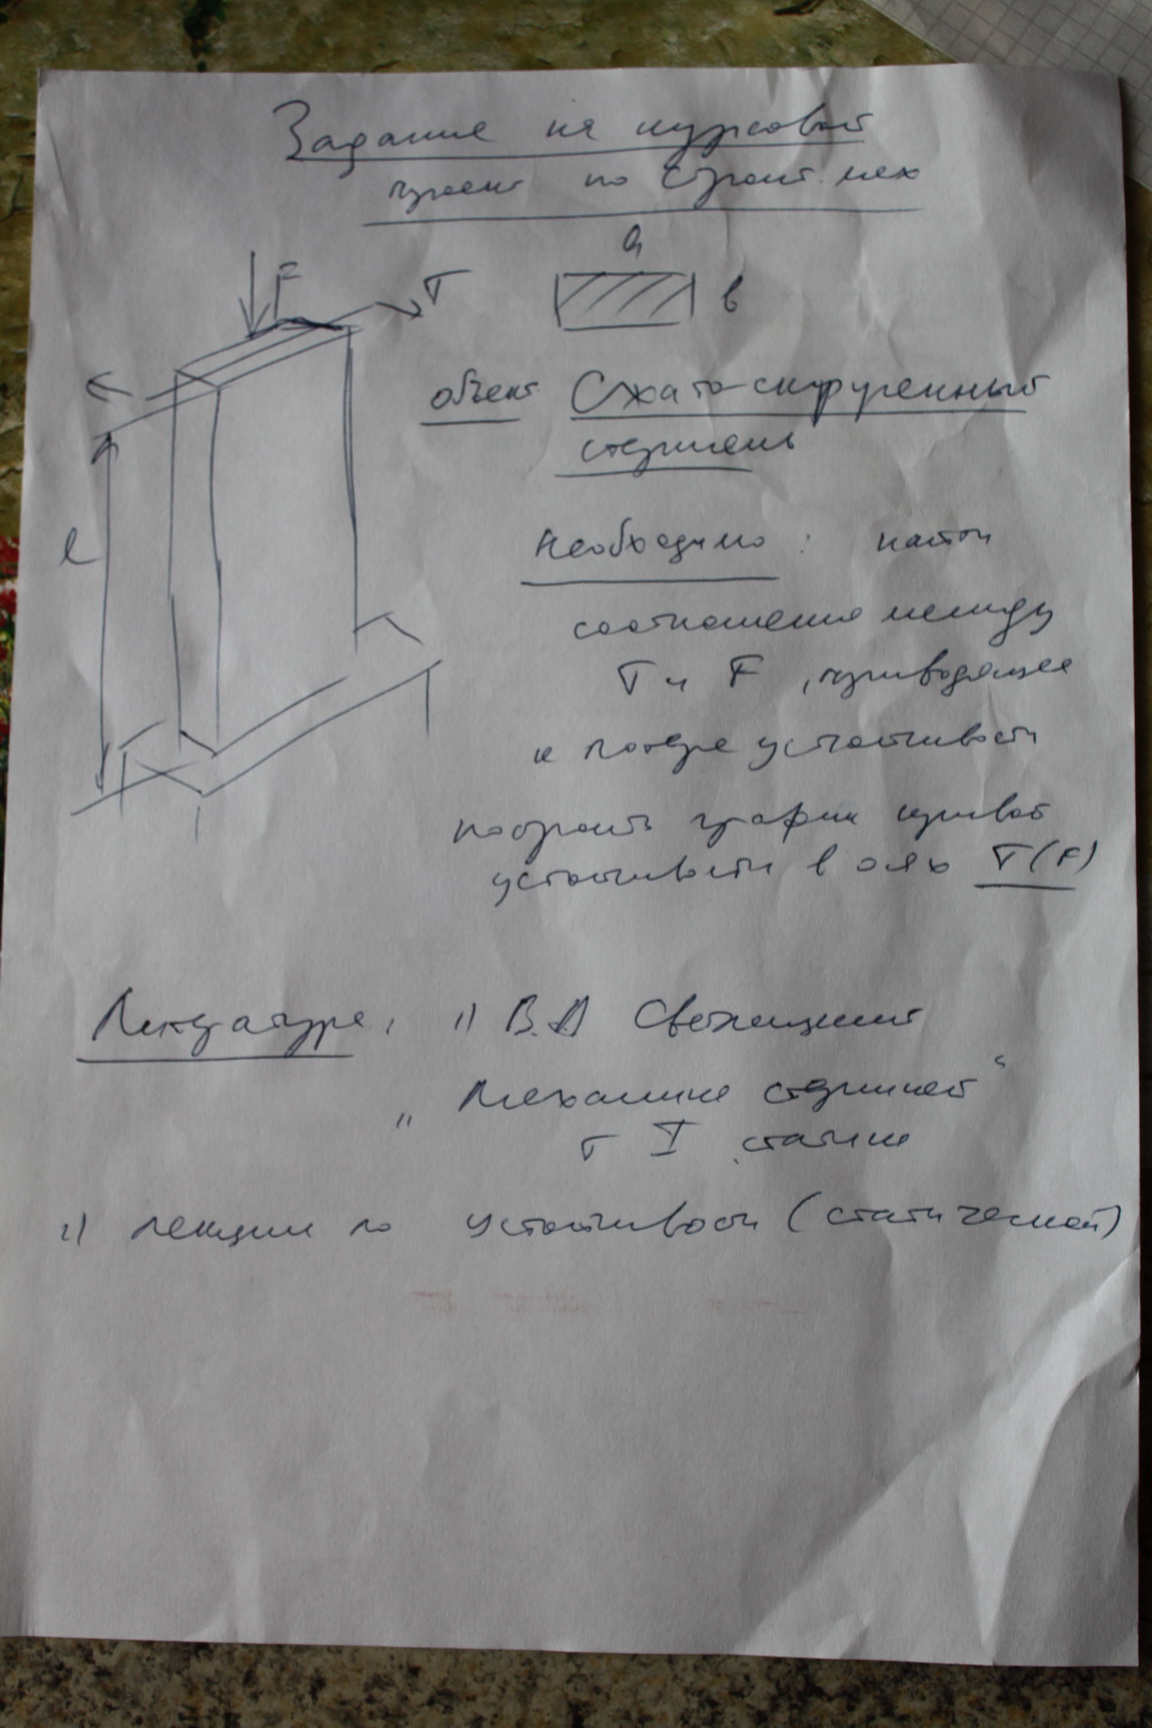 Задание на курсовой
проект по строит. мех
F
T
a
b
l
объект Сжато-скрученный
стержень
Необходимо: найти
соотношение между
T и F, приводящее
к потере устойчивости
построить график кривой
устойчивости в осях T(F)
Литература: 1) В.А Светлицкий
"Механика стержней"
т I статика
2) лекции по устойчивости (статической)